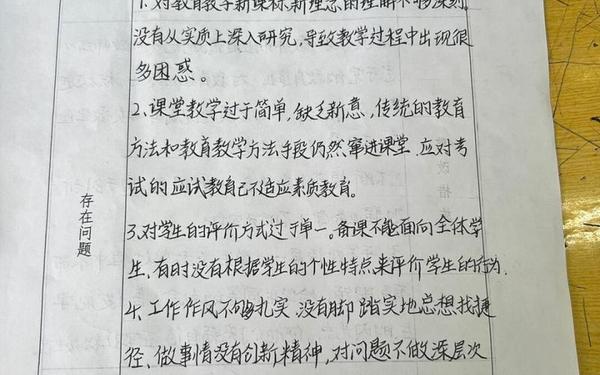 1.对教育教学新课标新理念的理解不够深刻
没有从实质上深入研究,导致教学过程中出现很
多困惑。
2、课堂教学过于简单,缺乏新意,传统的教育
方法和教育教学方法手段仍然窜进课堂.应对考
试的应试教自己不适应素质教育。
3、对学生的评价方式过于单一。备课不能面向全体学
生、有时没有根据学生的个性特点来评价学生的行为.
4、工作作风不够扎实、没有脚踏实地总想找捷
径、做事情没有创新精神,对问题不做深层次
存在问题